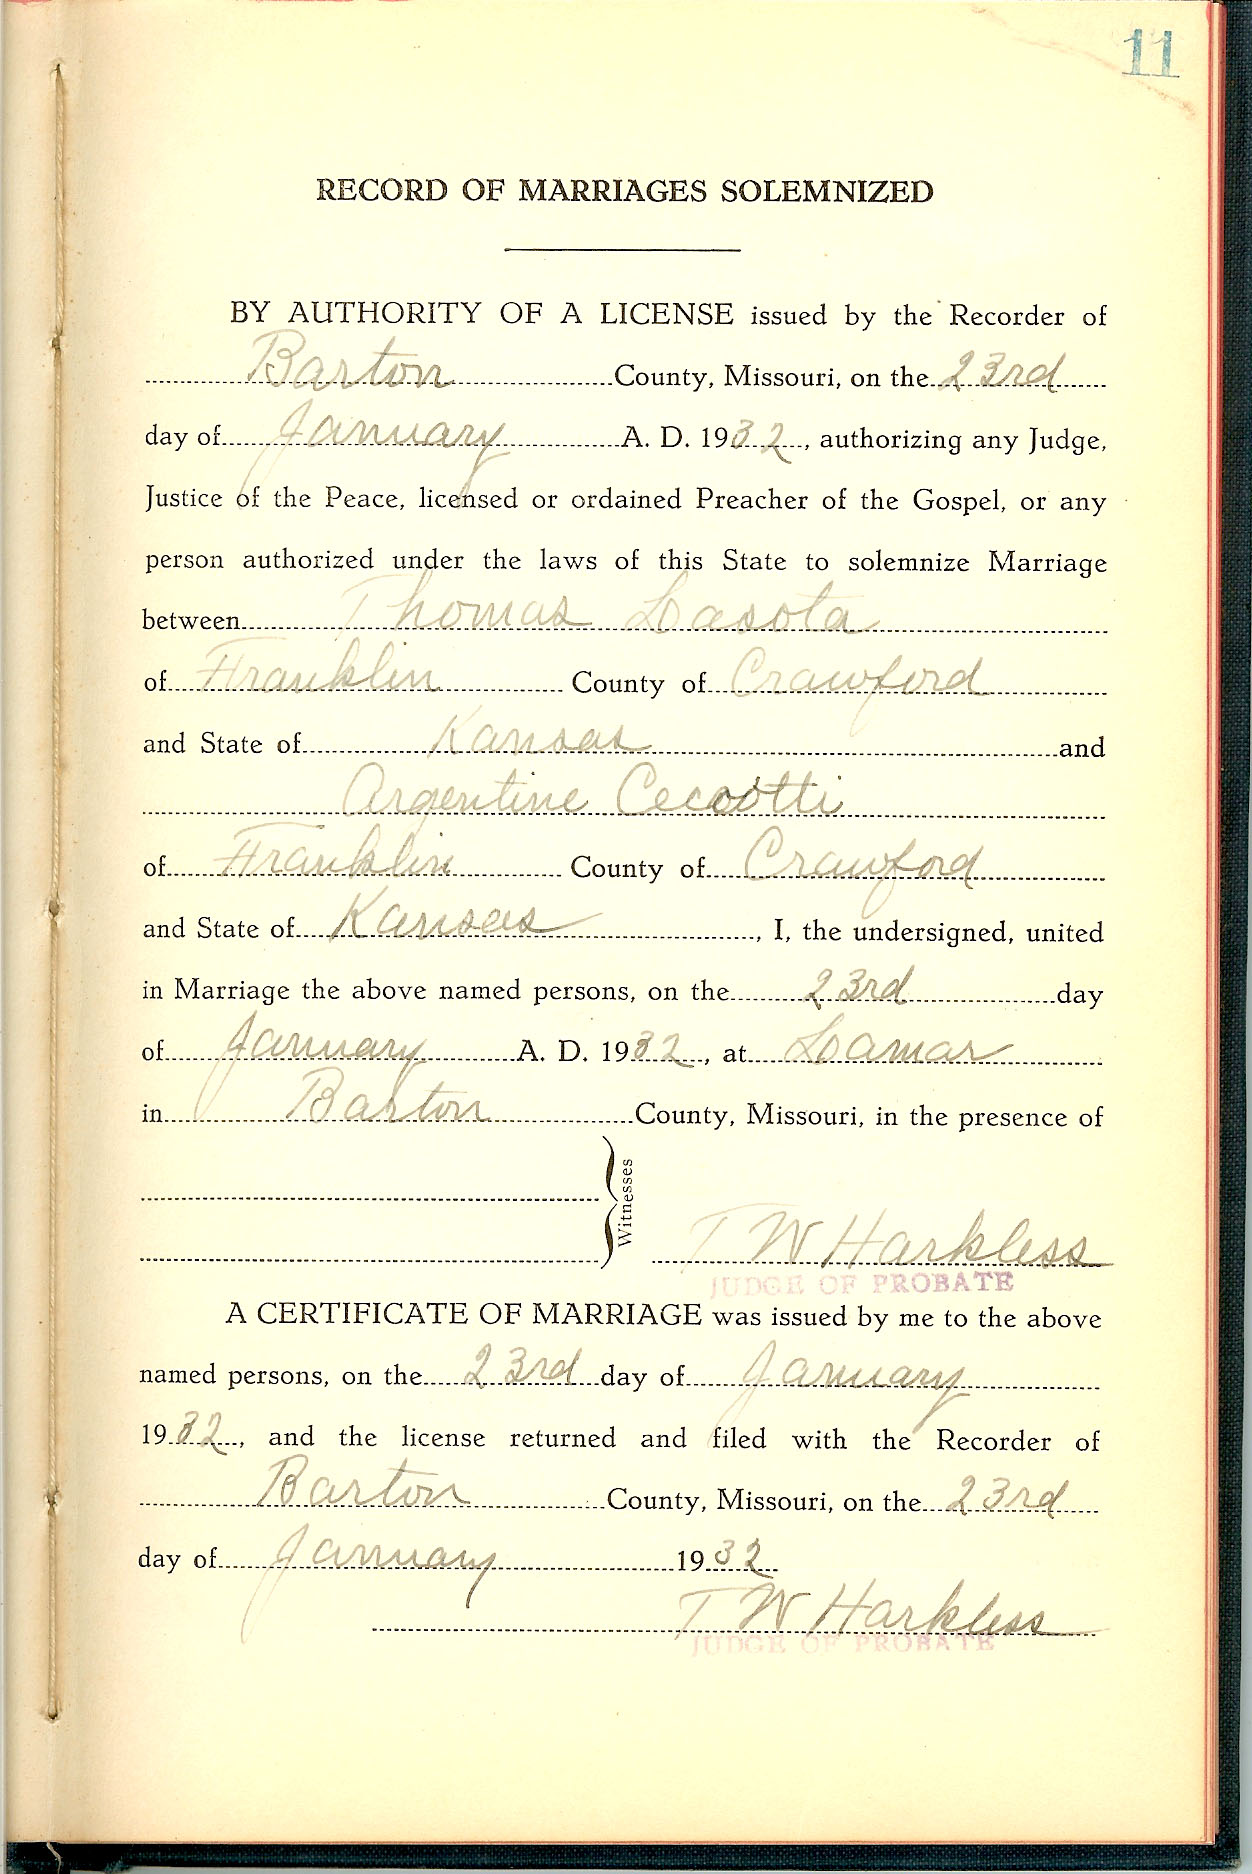 11
RECORD OF MARRIAGES SOLEMNIZED
BY AUTHORITY OF A LICENSE issued by the Recorder of
Barton County, Missouri, on the 23rd
day of January A. D. 1932, authorizing any Judge,
Justice of the Peace, licensed or ordained Preacher of the Gospel, or any
person authorized under the laws of this State to solemnize Marriage
between Thomas Lasota
of Franklin County of Crawford
and State of Kansas and
Argentine Cecootti
of Franklin County of Crawford
and State of Kansas, I, the undersigned, united
in Marriage the above named persons, on the 23rd day
of January A. D. 1932, at Lamar
in Barton County, Missouri, in the presence of
Witnesses
T W Harkless
JUDGE OF PROBATE
A CERTIFICATE OF MARRIAGE was issued by me to the above
named persons, on the 23rd day of January
1932, and the license returned and filed with the Recorder of
Barton County, Missouri, on the 23rd
day of January 1932
T W Harkless
JUDGE OF PROBATE